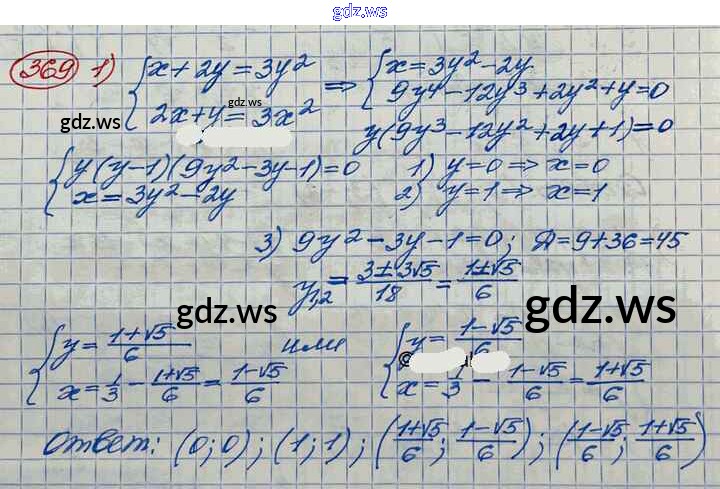 gdz.ws
369 1) { x + 2y = 3y² ⇒ { x = 3y² - 2y
2x + y = 3x² 9y⁴ - 12y³ + 2y² + y = 0
gdz.ws
gdz.ws
y(9y³ - 12y² + 2y + 1) = 0
{ y(y-1)(9y² - 3y - 1) = 0 1) y = 0 ⇒ x = 0
x = 3y² - 2y 2) y = 1 ⇒ x = 1
3) 9y² - 3y - 1 = 0; Д = 9 + 36 = 45
y₁,₂ = (3 ± 3√5)/18 = (1 ± √5)/6
gdz.ws
gdz.ws
{ y = (1+√5)/6 или { y = (1-√5)/6
x = 1/3 - (1+√5)/6 = (1-√5)/6 x = 1/3 - (1-√5)/6 = (1+√5)/6
Ответ: (0; 0); (1; 1); ((1+√5)/6; (1-√5)/6); ((1-√5)/6; (1+√5)/6)